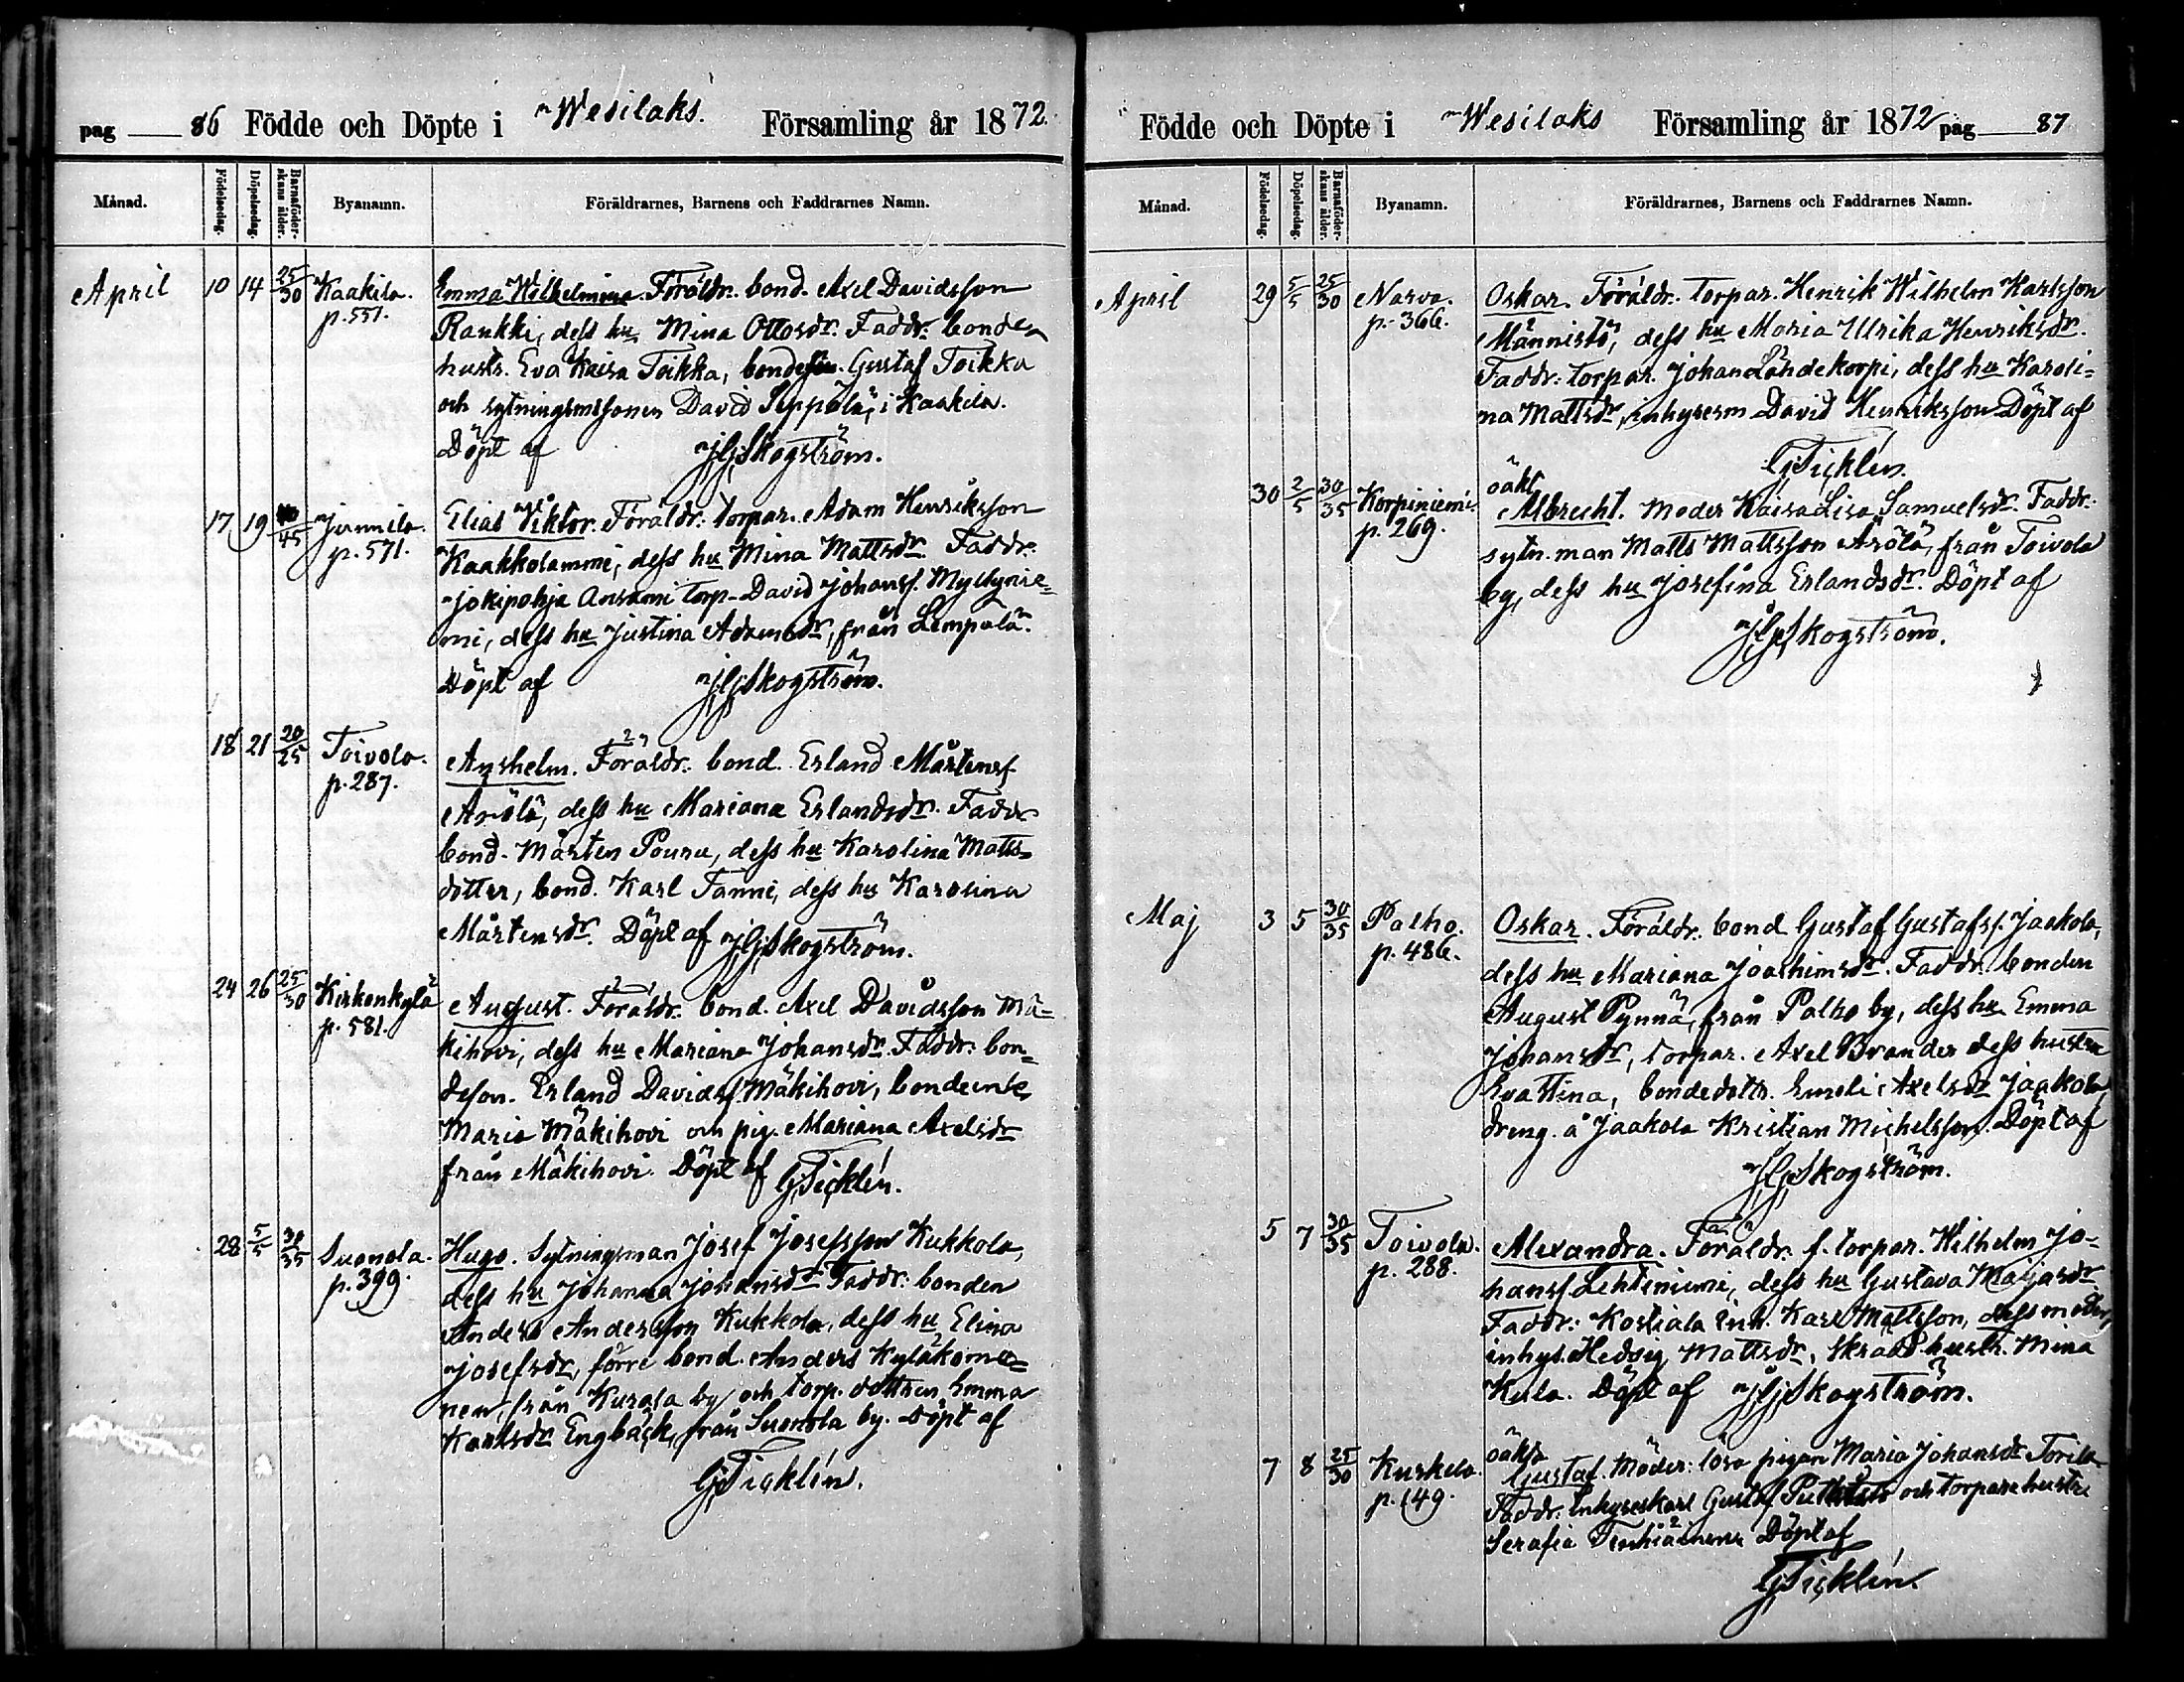 pag 86 Födde och Döpte i Wesilaks. Församling år 1872.
Månad. Födelsedag. Döpelsedag. Barnaföderskans ålder. Byanamn. Föräldrarnes, Barnens och Faddrarnes Namn.
April 10 14 25/30 Kaakila. Emma Wilhelmina. Föräldr. bond. Axel Davidsson
p. 551. Rankki, dess hu Mina Ottosdr. Faddr. bonde
hustr. Eva Kaisa Toikka, bonde Gustaf Toikka
och sytningsm David Seppälä, i Kaakila.
Döpt af JGSkogström.
17 19 40/45 Junnila. Elias Viktor. Föräldr: torpar. Adam Henriksson
p. 571. Kaakkolammi, dess hu Mina Mattsdr. Faddr.
Jokipohja Ansami torp. David Johanss. Myllynie=
mi, dess hu Justina Adamsdr, från Lempälä.
Döpt af JGSkogström.
18 21 20/25 Toivola. Anshelm. Föräldr. bond. Erland Mårtenss
p. 287. Arölä, dess hu Mariana Erlandsdr. Faddr
bond. Mårten Pouru, dess hu Karolina Matts=
dotter, bond. Karl Tanni, dess hu Karolina
Mårtensdr. Döpt af JGSkogström.
24 26 25/30 Kirkonkylä August. Föräldr. bond. Axel Davidsson Mä=
p. 581. kihovi, dess hu Mariana Johansdr. Faddr: bon=
deson. Erland Davidss Mäkihovi, bondeenk
Maria Mäkihovi och pig. Mariana Axelsdr
från Mäkihovi. Döpt af GTicklén.
28 5/5 30/35 Suonola. Hugo. Sytningsman Josef Josefsson Kukkola,
p. 399. dess hu Johanna Johansdr. Faddr: bonden
Anders Andersson Kukkola, dess hu Elina
Josefsdr, förre bond. Anders Kyläkoma=
nen, från Kurala by och torp. dottren Emma
Karlsdr Engbäck, från Suonola by. Döpt af
GTicklén.
Födde och Döpte i Wesilaks Församling år 1872 pag 87
Månad. Födelsedag. Döpelsedag. Barnaföderskans ålder. Byanamn. Föräldrarnes, Barnens och Faddrarnes Namn.
April 29 5/5 25/30 Narva. Oskar. Föräldr. torpar. Henrik Wilhelm Karlsson
p. 366. Männistö, dess hu Maria Ulrika Henriksdr.
Faddr: torpar. Johan Lähdekorpi, dess hu Karoli=
na Mattsdr, inhysesm David Henriksson Döpt af
GTicklén.
oäkt
30 2/5 30/35 Korpiniemi Albrecht. Moder Kaisa Lisa Samuelsdr. Faddr.
p. 269. sytn. man Matts Mattsson Arölä, från Toivola
by, dess hu Josefina Erlandsdr. Döpt af
JGSkogström.
Maj 3 5 30/35 Palho. Oskar. Föräldr. bond Gustaf Gustafss. Jaakola,
p. 486. dess hu Mariana Joachimsdr. Faddr. bonden
August Pynnä, från Palho by, dess hu Emma
Johansdr, torpar. Axel Brander dess hustru
Eva Stina, bondedottr. Emeli Axelsdr Jaakola
dreng. å Jaakola Kristian Michelsson. Döpt af
JGSkogström.
5 7 30/35 Toivola. Alexandra. Föräldr. f. torpar. Wilhelm Jo=
p. 288. hanss Lehtiniemi, dess hu Gustava Maijasdr
Faddr: Kostiala Inh. Karl Mattsson, dess moder,
inhys. Hedvig Mattsdr, Skradd. hustr. Mina
Kula. Döpt af JGSkogström.
oäkta
7 8 25/30 Kuskela. Gustaf. Moder: lösa pigan Maria Johansdr Torila
p. 149. Faddr. Inhyseskarl Gustaf och torparehustru
Serafia Döpt af
GTicklén.